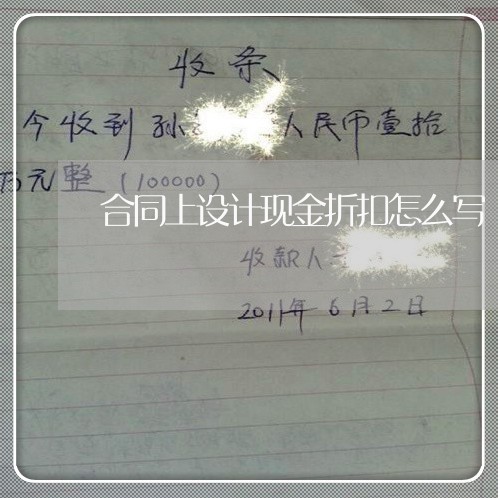 收条
今收到孙 人民币壹拾
万元整（100000）
合同上设计现金折扣怎么写
收款人
2011年6月2日